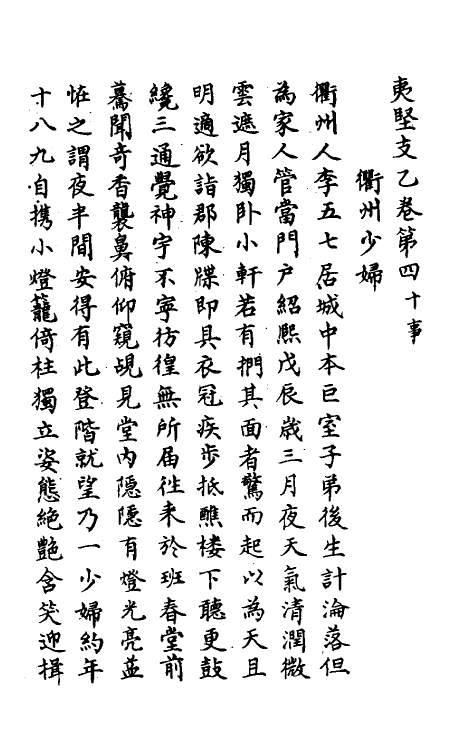 夷堅支乙卷第四十事
衢州少婦
衢州人李五七居城中本巨室子弟後生計淪落但
為家人管當門户紹熙戊辰歲三月夜天氣清潤微
雲遮月獨卧小軒若有捫其面者驚而起以為天且
明適欲詣郡陳牒即具衣冠疾步抵譙楼下聽更鼓
纔三通覺神宇不寧彷徨無所届徃来於班春堂前
驀聞奇香襲鼻俯仰窺覘見堂内隠隠有燈光亮益
恠之謂夜半間安得有此登階就望乃一少婦約年
十八九自携小燈籠倚柱獨立姿態絶艶含笑迎揖